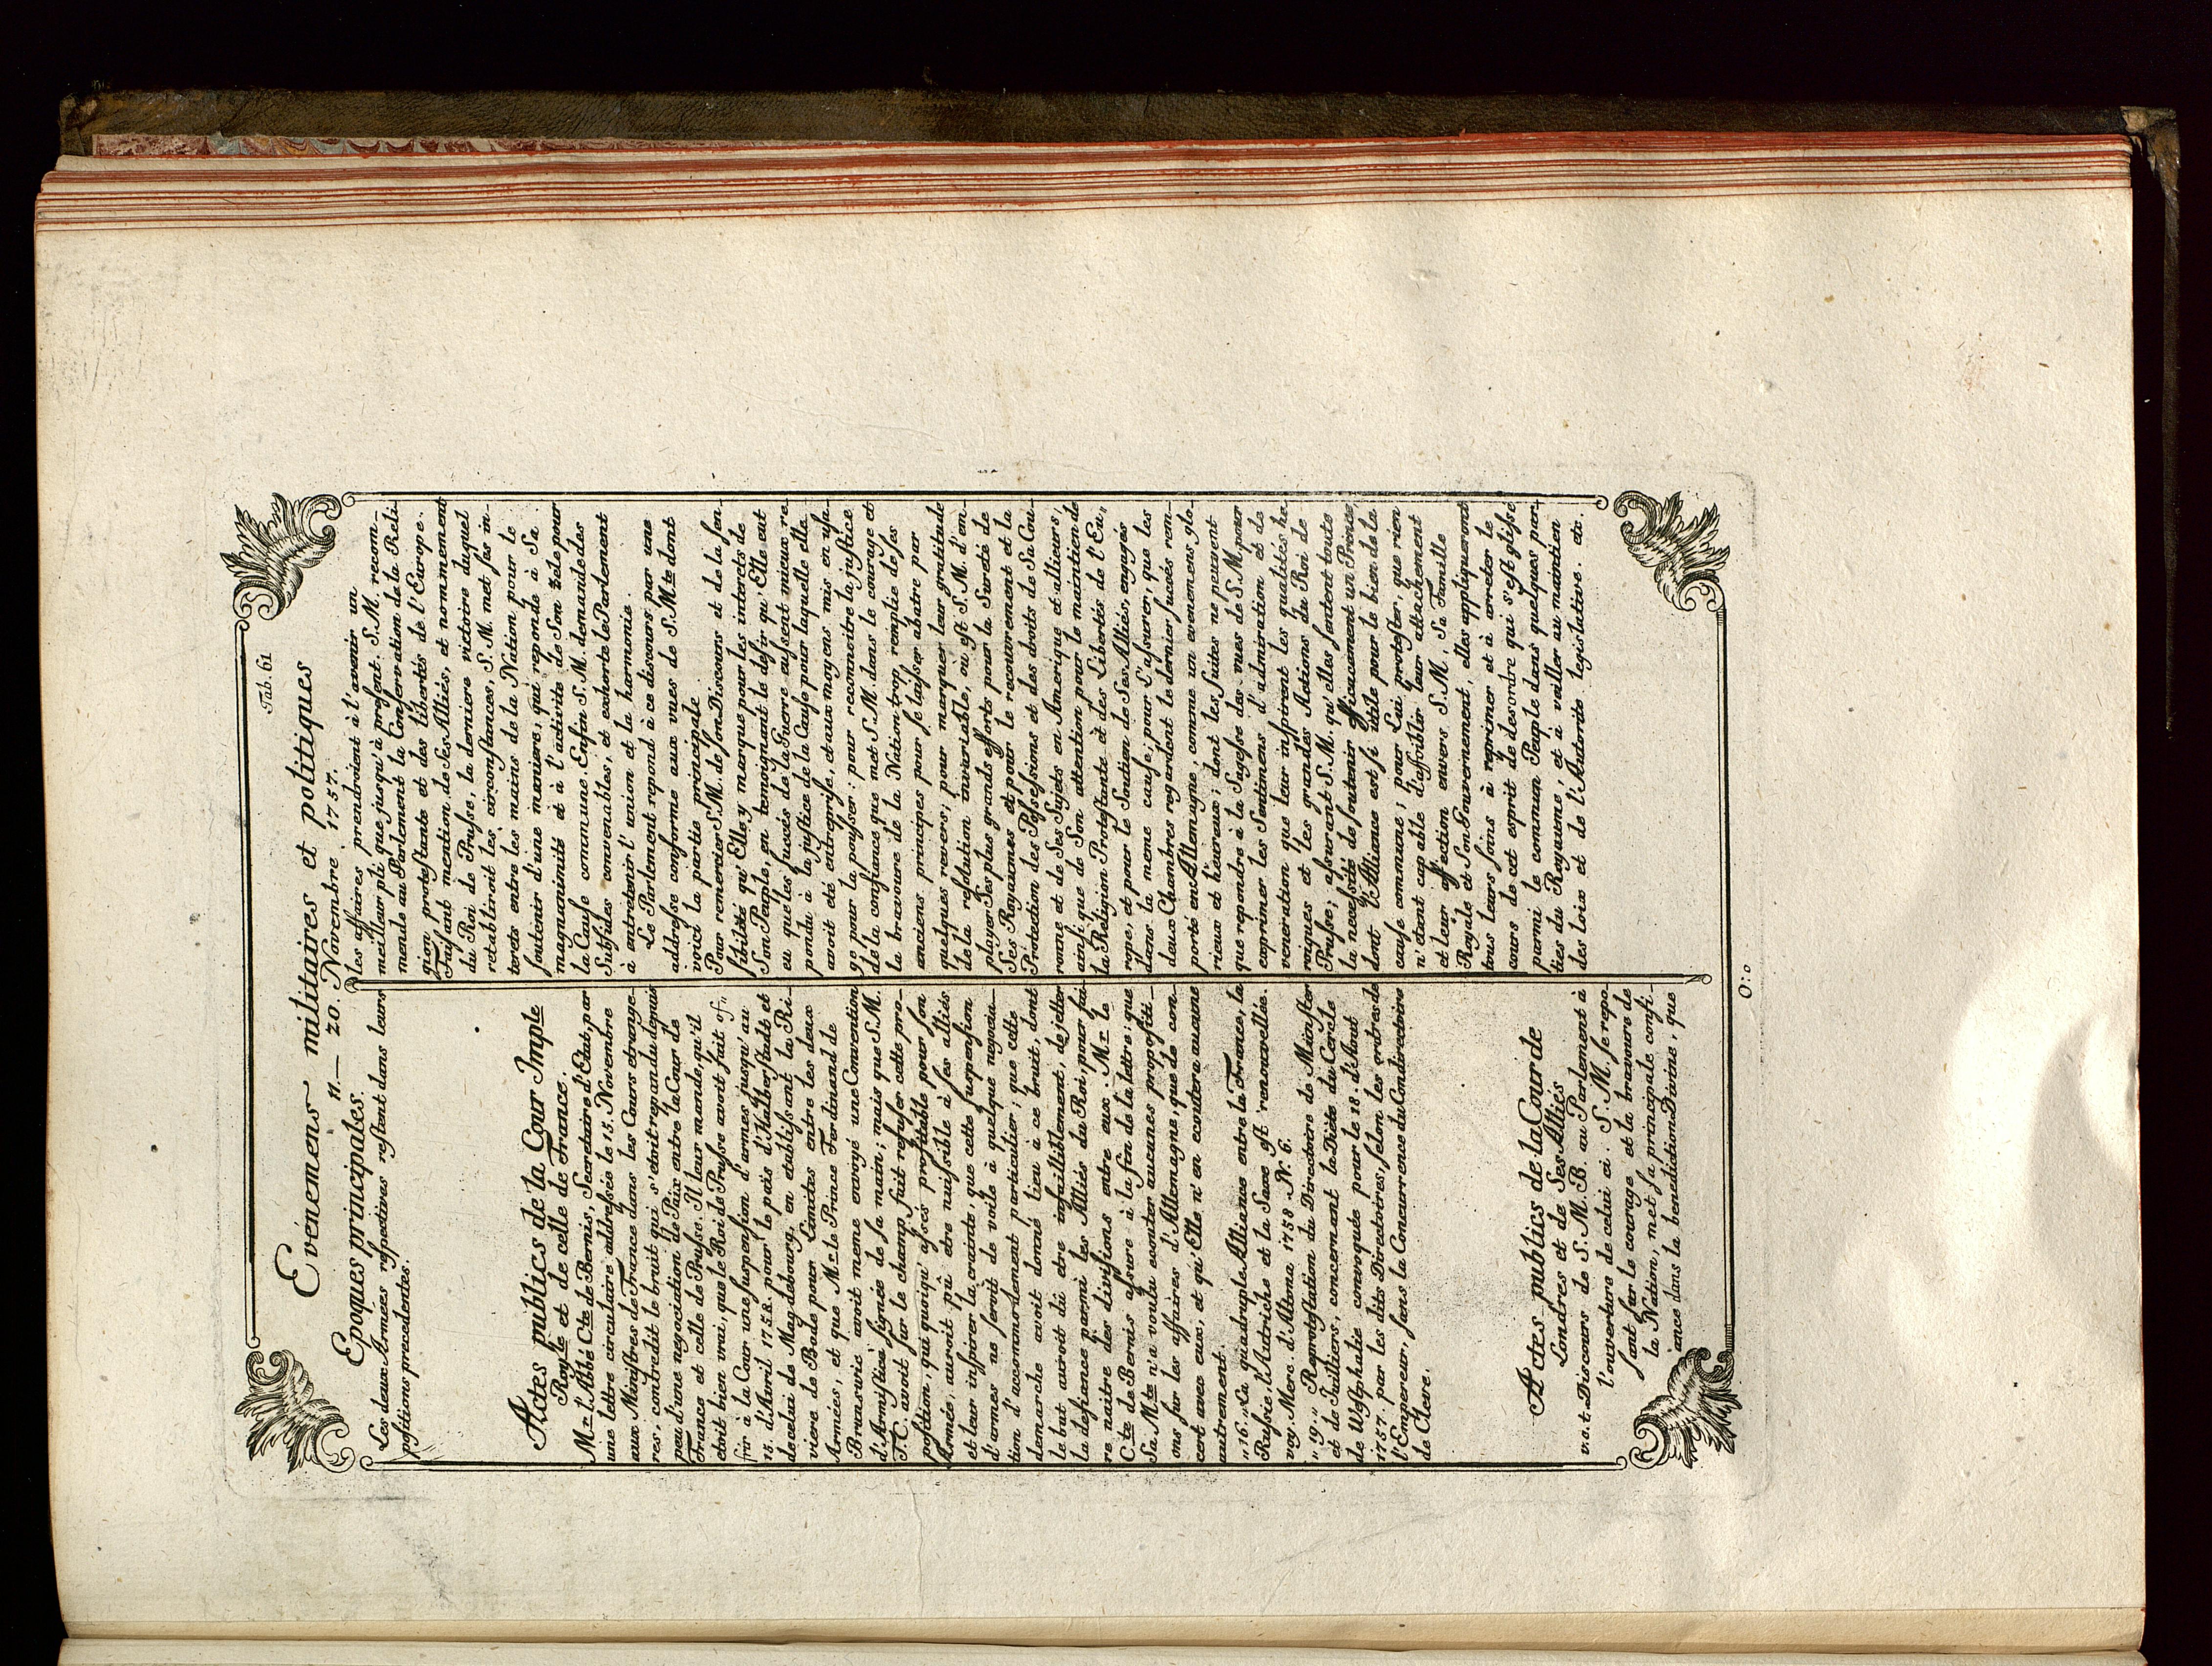 Tab. 61
Evénemens militaires et politiques
11. — 20. Novembre 1757.
Epoques principales.
Les deux Armées respectives restent dans leurs
positions precedentes.
Actes publics de la Cour Imple
Romle et de celle de France.
Mr l'Abbé Cte de Bernis, Secretaire d'Etat, par
une lettre circulaire addressée le 15. Novembre
aux Ministres de France dans les Cours etrange-
res, contredit le bruit qui s'etoit repandu depuis
peu d'une negociation de Paix entre la Cour de
France et celle de Prusse. Il leur mande, qu'il
etoit bien vrai, que le Roi de Prusse avoit fait of„
frir à la Cour une suspension d'armes jusqu'au
15. d'Avril 1758. pour le païs d'Halberstadt et
de celui de Magdebourg, en etablissant la Ri-
viere de Bode pour Limites entre les deux
Armées, et que Mr le Prince Ferdinand de
Brunsvic avoit meme envoyé une Convention
d'Armistice signée de sa main; mais que S.M.
T.C. avoit sur le champ fait refuser cette pro-
position, qui quoiqu' assés profitable pour son
Armée, auroit pû etre nuisible à ses alliés
et leur inspirer la crainte, que cette suspension
d'armes ne seroit de voile à quelque negocia-
tion d'accommodement particulier; que cette
demarche avoit donné lieu à ce bruit, dont
le but auroit dû etre infailliblement, de jetter
la defiance parmi les Alliés du Roi, pour fai
re naitre des divisions entre eux. Mr le
Cte de Bernis assure à la fin de la lettre: que
Sa Mte n'a voulu ecouter aucunes propositi-
ons sur les affaires d'Allemagne, que de con-
cert avec eux, et qu'Elle n'en ecoutera aucune
autrement.
„16.„ La quadruple Alliance entre la France, la
Russie, l'Autriche et la Saxe est renouvellée.
voy. Merc. d'Altona 1758. N. 6.
„19.„ Reprotestation du Directoire de Münster
et de Juilliers, concernant la Diète du Cercle
de Westphalie convoquée pour le 18. d'Aout
1757. par les dits Directoires, selon les ordres de
l'Empereur, sans la Concurrence du Condirectoire
de Cleve.
Actes publics de la Cour de
Londres et de Ses Alliés
v.s.t. Discours de S.M.B. au Parlement à
l'ouverture de celui ci. S.M. se repo
sant sur le courage et la bravoure de
la Nation, met sa principale confi-
ance dans la benediction Divine, que
les affaires prendroient à l'avenir un
meilleur pli que jusqu'à present. S.M. recom-
mende au Parlement la Conservation de la Reli-
gion protestante et des libertés de l'Europe.
Faisant mention de ses Alliés, et nommement
du Roi de Prusse, la derniere victoire duquel
retabliroit les circonstances, S.M. met ses in-
terets entre les mains de la Nation pour le
soutenir d'une maniere, qui reponde à Sa
magnanimité et à l'activité de Son Zèle pour
la Cause commune. Enfin S.M. demande des
Subsides convenables, et exhorte le Parlement
à entretenir l'union et la harmonie.
Le Parlement repond à ce discours par une
addresse conforme aux vues de S.Mte dont
voici la partie principale
Pour remercier S.M. de son Discours et de la sen-
sibilité qu'Elle y marque pour les interets de
Son Peuple, en temoignant le desir qu'Elle eut
eu que les succés de la Guerre eussent mieux re
pondu à la justice de la Cause pour laquelle elle
avoit eté entreprise, et aux moyens mis en usa
ge pour la pousser: pour reconnoitre la justice
de la confiance que met S.M. dans le courage et
la bravoure de la Nation trop remplie de ses
anciens principes pour se laisser abatre par
quelques revers; pour marquer leur gratitude
de la resolution invariable, ou est S.M. d'em-
ployer Ses plus grands efforts pour la Sureté de
Ses Royaumes et pour le recouvrement et la
Protection des Possessions et des droits de Sa Cou-
ronne et de Ses Sujets en Amerique et allieurs,
ainsi que de Son attention pour le maintien de
la Religion Protestante et des Libertés de l'Eu„
rope, et pour le Soutien de Ses Alliés, engagés
dans la meme cause; pour L'assurer, que les
deux Chambres regardent le dernier succés rem-
porté en Allemagne, comme un evenement glo-
rieux et heureux; dont les suites ne peuvent
que repondre à la Sagesse des vues de S.M. pour
exprimer les Sentimens d'admiration et de
veneration que leur inspirent les qualités he
roiques et les grandes Actions du Roi de
Prusse; assurant S.M. qu'elles sentent toute
la necessité de soutenir efficacement un Prince,
dont l'Alliance est si utile pour le bien de la
cause commune; pour Lui protester, que rien
n'etant capable d'affoiblir leur attachement
et leur affection envers S.M., Sa Famille
Royale et Son Gouvernement, elles appliqueront
tous leurs soins à reprimer et à arreter le
cours de cet esprit de desordre qui s'est glissé
parmi le commun Peuple dans quelques par-
ties du Royaume, et à veiller au maintien
des loix et de l'Autorité legislative. etc.
O:o